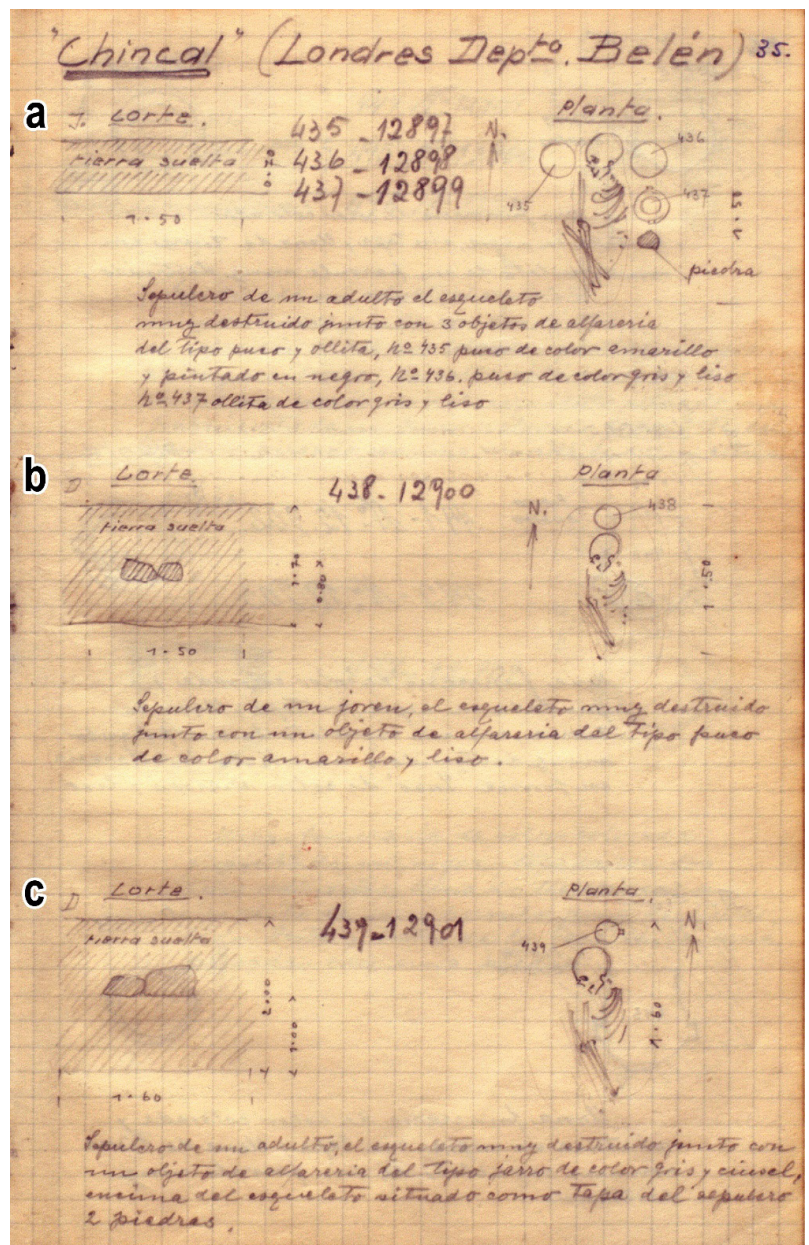 "Chincal" (Londres Depto. Belén) 35.
a
Corte.
435 - 12897
436 - 12898
437 - 12899
N.
Planta.
436
tierra suelta
435
437
1.50
piedra
Sepulcro de un adulto el esqueleto
muy destruido junto con 3 objetos de alfareria
del tipo puco y ollita, Nº 435 puco de color amarillo
y pintado en negro, Nº 436. puco de color gris y liso
Nº 437 ollita de color gris y liso
b
D
Corte.
438 - 12900
Planta
N.
438
tierra suelta
1.70
0.80
1.50
1.50
Sepulcro de un joven, el esqueleto muy destruido
junto con un objeto de alfareria del Tipo puco
de color amarillo y liso.
c
D
Corte.
439 - 12901
Planta.
N.
439
tierra suelta
2.00
1.00
1.60
1.60
Sepulcro de un adulto, el esqueleto muy destruido junto con
un objeto de alfareria del tipo jarro de color gris y cincel,
encima del esqueleto situado como Tapa del sepulcro
2 piedras.